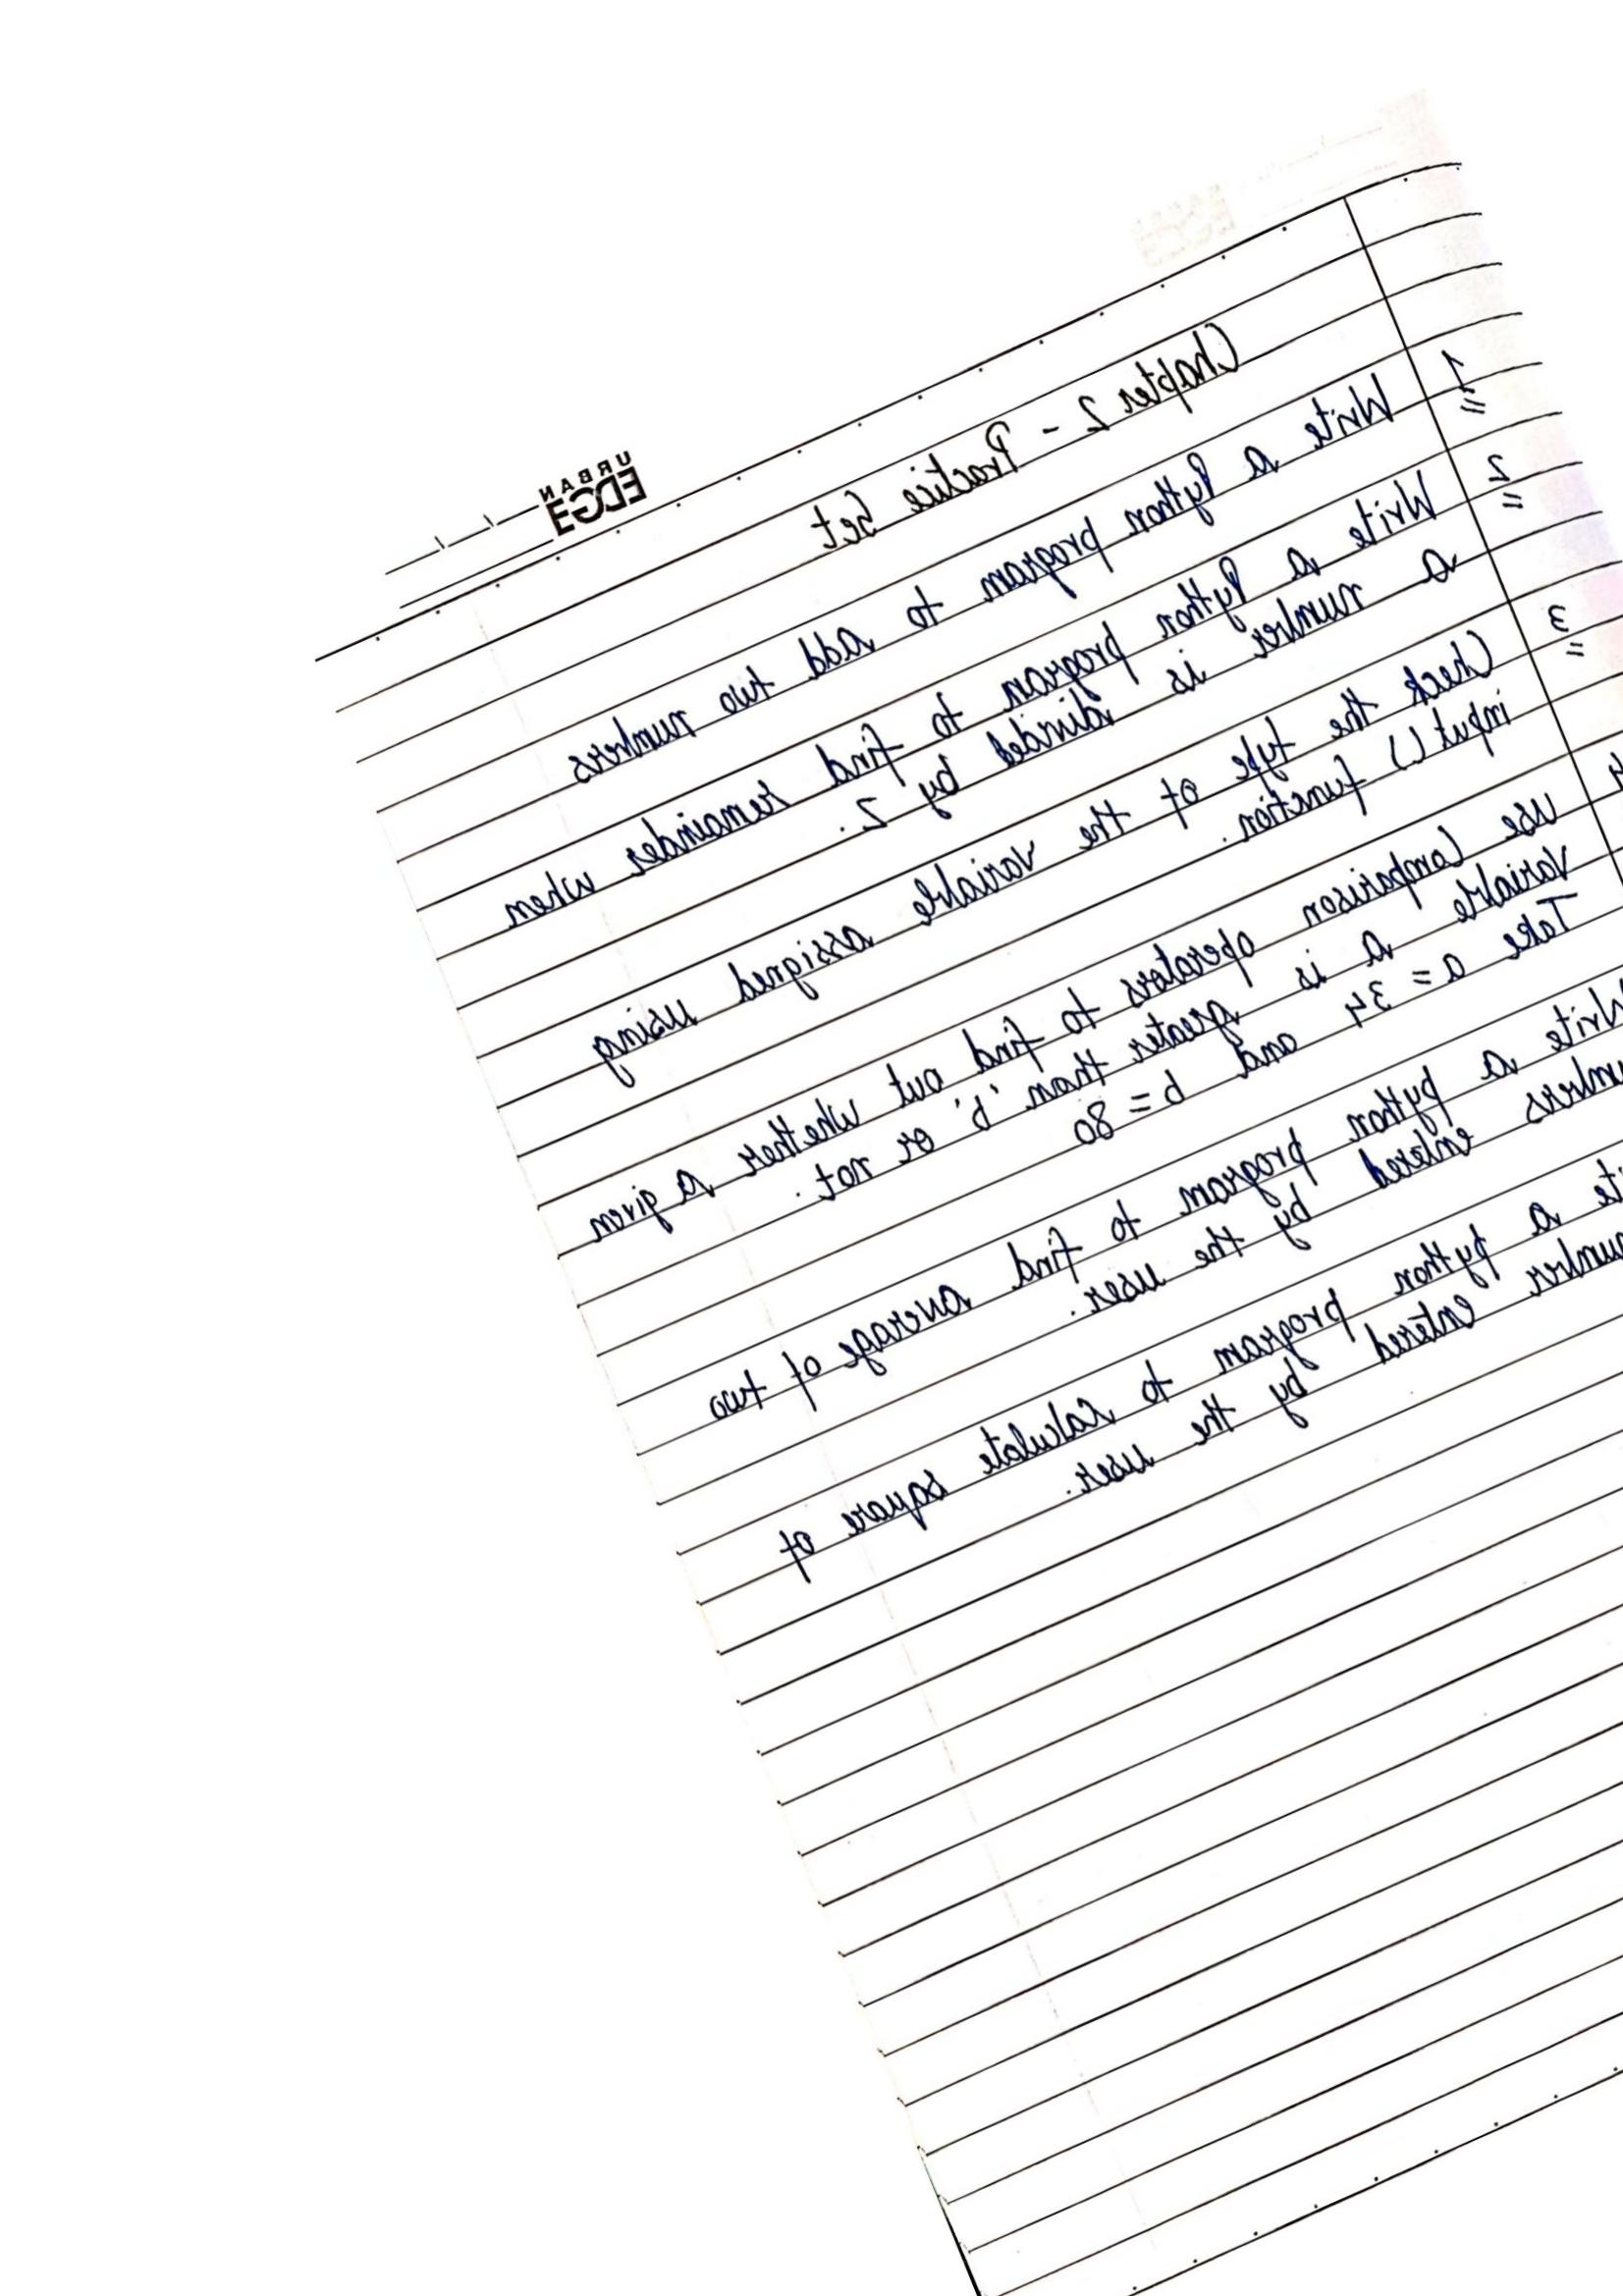 URBAN
EDGE
Chapter 2 - Practice Set
1 Write a Python program to add two numbers
2 Write a Python program to find remainder when
a number is divided by 2.
3 Check the type of the variable assigned using
input () function.
Use Comparison operators to find out whether a given
Variable a is greater than 'b' or not.
Take a = 34 and b = 80
Write a python program to find average of two
entered by the user.
a python program to calculate square of
entered by the user.